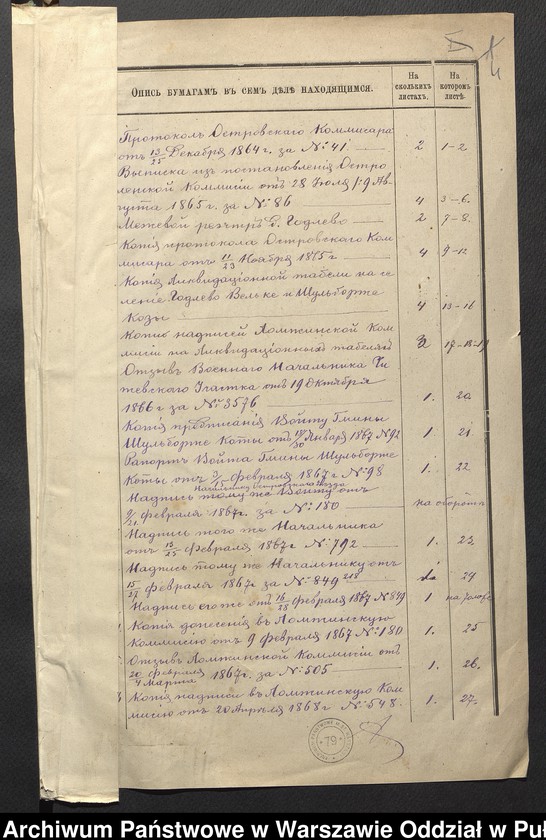 Опись бумагамъ въ семъ дѣлѣ находящимся.
На сколькихъ листахъ.
На которомъ листѣ.
Протоколъ Островскаго Коммисара
отъ 13/25 Декабря 1864 г. за №41 2 1-2
Выписки изъ постановленія Остро
ленской Коммисіи отъ 28 Іюля / 9 Ав-
густа 1865 г. за №86 4 3-6.
Межевой регистръ с. Годлево 2 7-8.
Копія протокола Островскаго Ком
мисара отъ 11/23 Ноября 1865 г 4 9-12
Копія Ликвидаціонной табели на се
леніе Годлево Вельке и Шульборже
Козы 4 13-16
Копіи надписей Ломжинской Ком
мисіи на Ликвидаціонныхъ табеляхъ 3 17-18-19
Отзывъ Военнаго Начальника
Участка отъ 19 Октября
1866 г за № 3576 1. 20
Копія предписанія Войту Гмины
Шульборже Коты отъ 18/30 Января 1867 №92 1. 21
Рапортъ Войта Гмины Шульборже
Коты отъ Февраля 1867 г №98 1. 22
Начальнику Островскаго Уѣзда
Надпись тому же Войту отъ
9/21 Февраля 1867 г. за №180 на оборотѣ
Надпись того же Начальника
отъ 13/25 Февраля 1867 г №792 1. 23
Надпись тому же Начальнику отъ
15/27 февраля 1867 за №849 218 1 24
Надпись его же отъ 16/28 февраля 1867 №849 1 на
Копія донесенія въ Ломжинскую
Коммисію отъ 9 февраля 1867 №180 1. 25
Отзывъ Ломжинской Коммисіи отъ
20 февраля / 4 Марта 1867 г. за №505 1. 26.
Копія надписи въ Ломжинскую Ком
мисію отъ 20 Апрѣля 1868 г №548. 1. 27.
79
Archiwum Państwowe w Warszawie Oddział w Puł